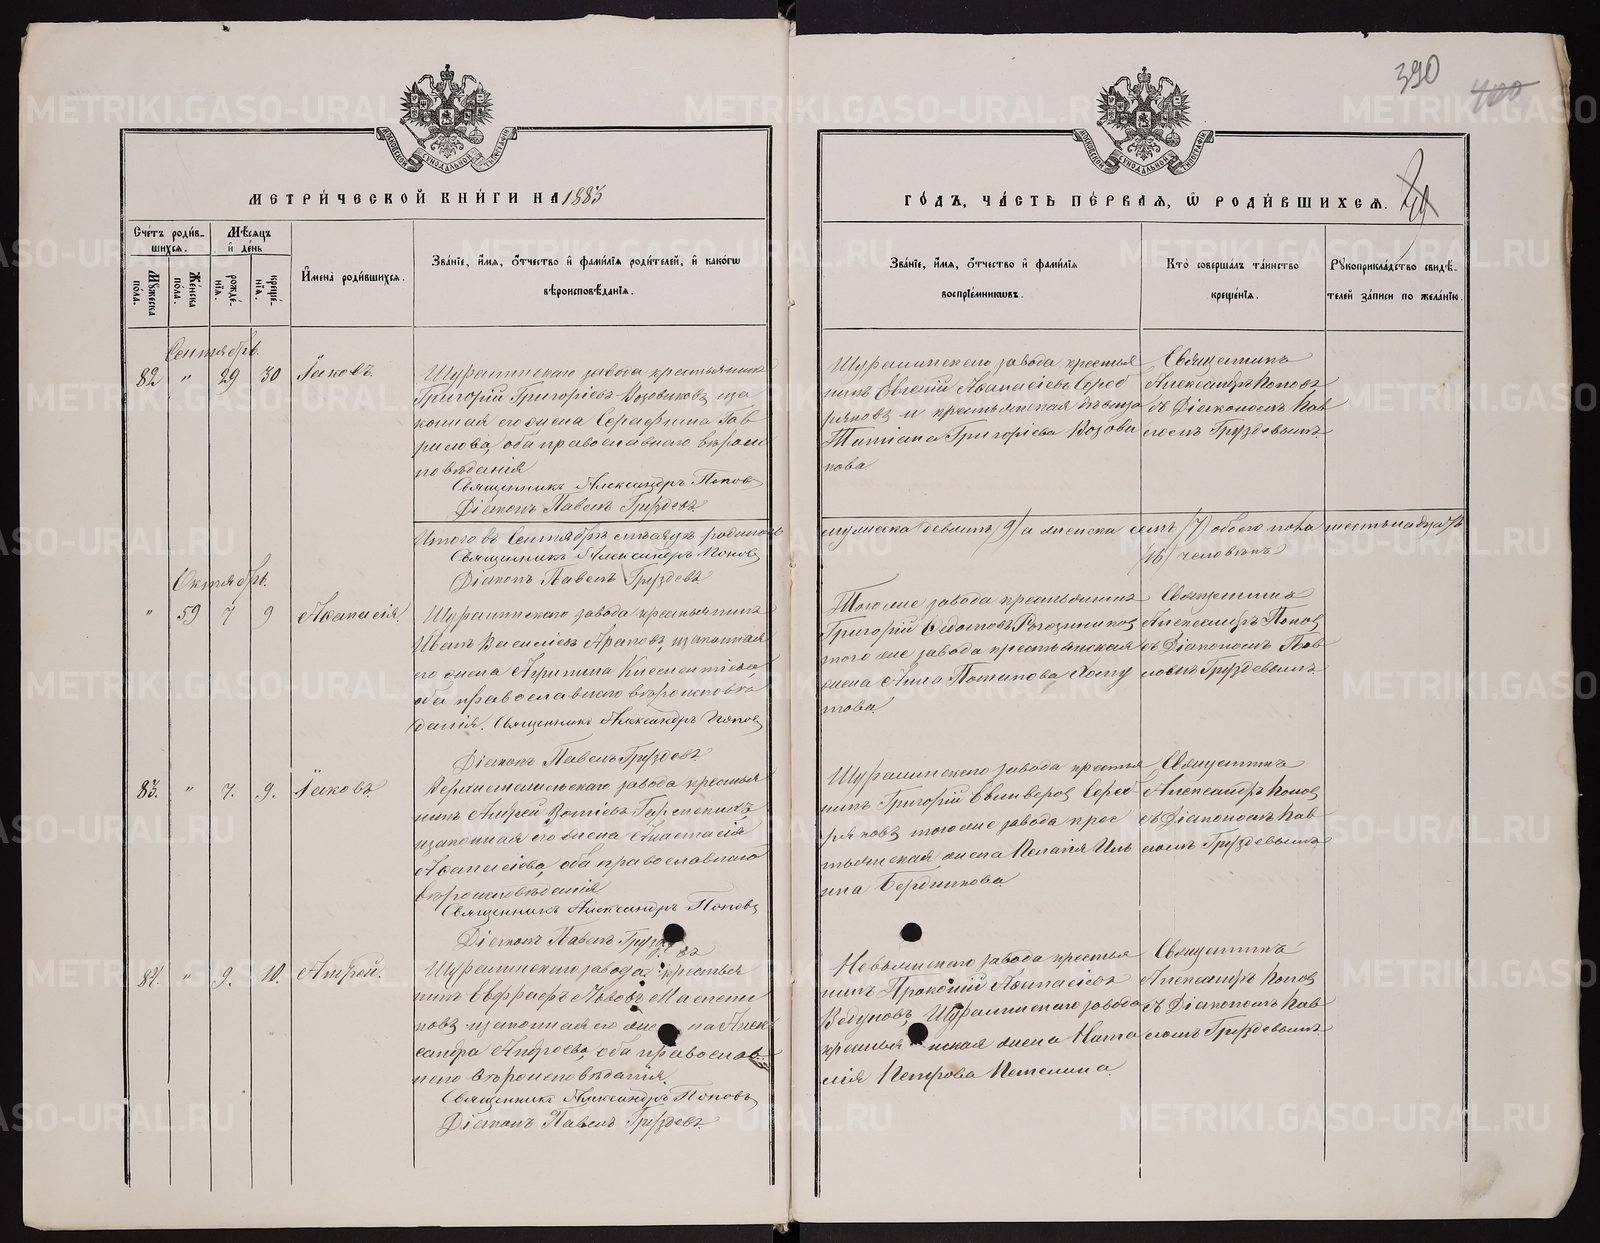 390
400
МЕТРИ́ЧЕСКОЙ КНИ́ГИ НА 1883
ГО́ДЪ, ЧА́СТЬ ПЕ́РВАЯ, Ѽ РОДИ́ВШИХСЯ.
Сче́тъ роди́в-
шихся.
Мѣ́сяцъ
и̂ де́нь
Му́жеска по́ла.
Же́нска по́ла.
рожде́-нїя.
креще́-нїя.
И̂мена̀ роди́вшихся.
Зва́нїе, и̂́мя, ѻ҆́тчество и̂ фами́лїя роди́телей, и̂ како́гѡ
вѣроисповѣ́данїя.
Зва́нїе, и̂́мя, ѻ҆́тчество и̂ фами́лїя
воспрїе́мникѡвъ.
Кто̀ соверша́лъ та́инство
креще́нїя.
Рꙋкоприкла́дство свидѣ́-
телей за́писи по жела́нїю.
Сентябрь.
82 " 29 30 Іаковъ
Шуралинскаго завода крестьянинъ
Григорій Григоріевъ Возовиковъ, за
конная его жена Серафима Гав
рилова, оба православнаго вѣроис
повѣданія
Священникъ Александръ Поповъ
Діаконъ Павелъ Груздевъ
Шуралинскаго завода крестья
нинъ Евгений Аѳанасіевъ Сереб
ряковъ и крестьянская дѣвица
Татіана Григоріева Возови
кова
Священникъ
Александръ Поповъ
съ Діакономъ Пав
ломъ Груздевымъ
Итого въ Сентябрѣ мѣсяцѣ родилось
мужеска девять /9/ а женска семь /7/ обоего пола шестьнадцать
/16/ человѣкъ
Священникъ Александръ Поповъ
Діаконъ Павелъ Груздевъ
Октябрь.
" 59 7 9 Аѳанасія.
Шуралинскаго завода крестьянинъ
Иванъ Василіевъ Араповъ, законная
его жена Агрипина Климентіева,
оба православнаго вѣроисповѣ
данія. Священникъ Александръ Поповъ
Діаконъ Павелъ Груздевъ
Тогоже завода крестьянинъ
Григорій Ѳедотовъ Рогозинниковъ
того же завода крестьянская
жена Анна Потапова
Священникъ
Александръ Поповъ
съ Діакономъ Пав
ломъ Груздевымъ
83. " 7. 9. Іаковъ.
завода крестья
нинъ Андрей
законная его жена Анастасія
Аѳанасіева, оба православнаго
вѣроисповѣданія
Священникъ Александръ Поповъ
Діаконъ Павелъ Груздевъ
Шуралинскаго завода крестья
нинъ Григорій Сереб
ряковъ тогоже завода крес
тьянская жена Пелагія Иль
ина Бердникова
Священникъ
Александръ Поповъ
съ Діакономъ Пав
ломъ Груздевымъ
84. " 9. 10. Андрей.
Шуралинскаго завода крестья
нинъ Львовъ Маслени
ковъ законная его жена Алек
сандра Андреева, оба православ
наго вѣроисповѣданія.
Священникъ Александръ Поповъ
Діаконъ Павелъ Груздевъ
Невьянскаго завода крестья
нинъ Прокопій Аѳанасіевъ
Ведуновъ, Шуралинскаго завода
крестьянская жена Ната
лія Петрова
Священникъ
Александръ Поповъ
съ Діакономъ Пав
ломъ Груздевымъ
METRIKI.GASO-URAL.RU